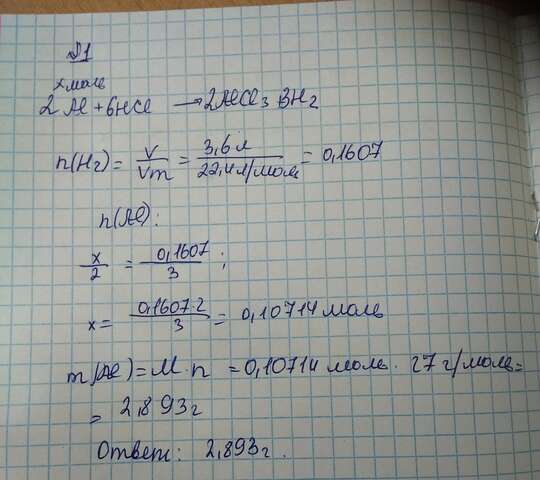 №1
x моль
2Al + 6HCl → 2AlCl₃ 3H₂
n(H₂) = V/Vm = 3,6 л/22,4 л/моль = 0,1607
n(Al):
x/2 = 0,1607/3 ;
x = 0,1607·2/3 = 0,10714 моль
m(Al) = M·n = 0,10714 моль · 27 г/моль =
= 2,893 г
Ответ: 2,893 г.